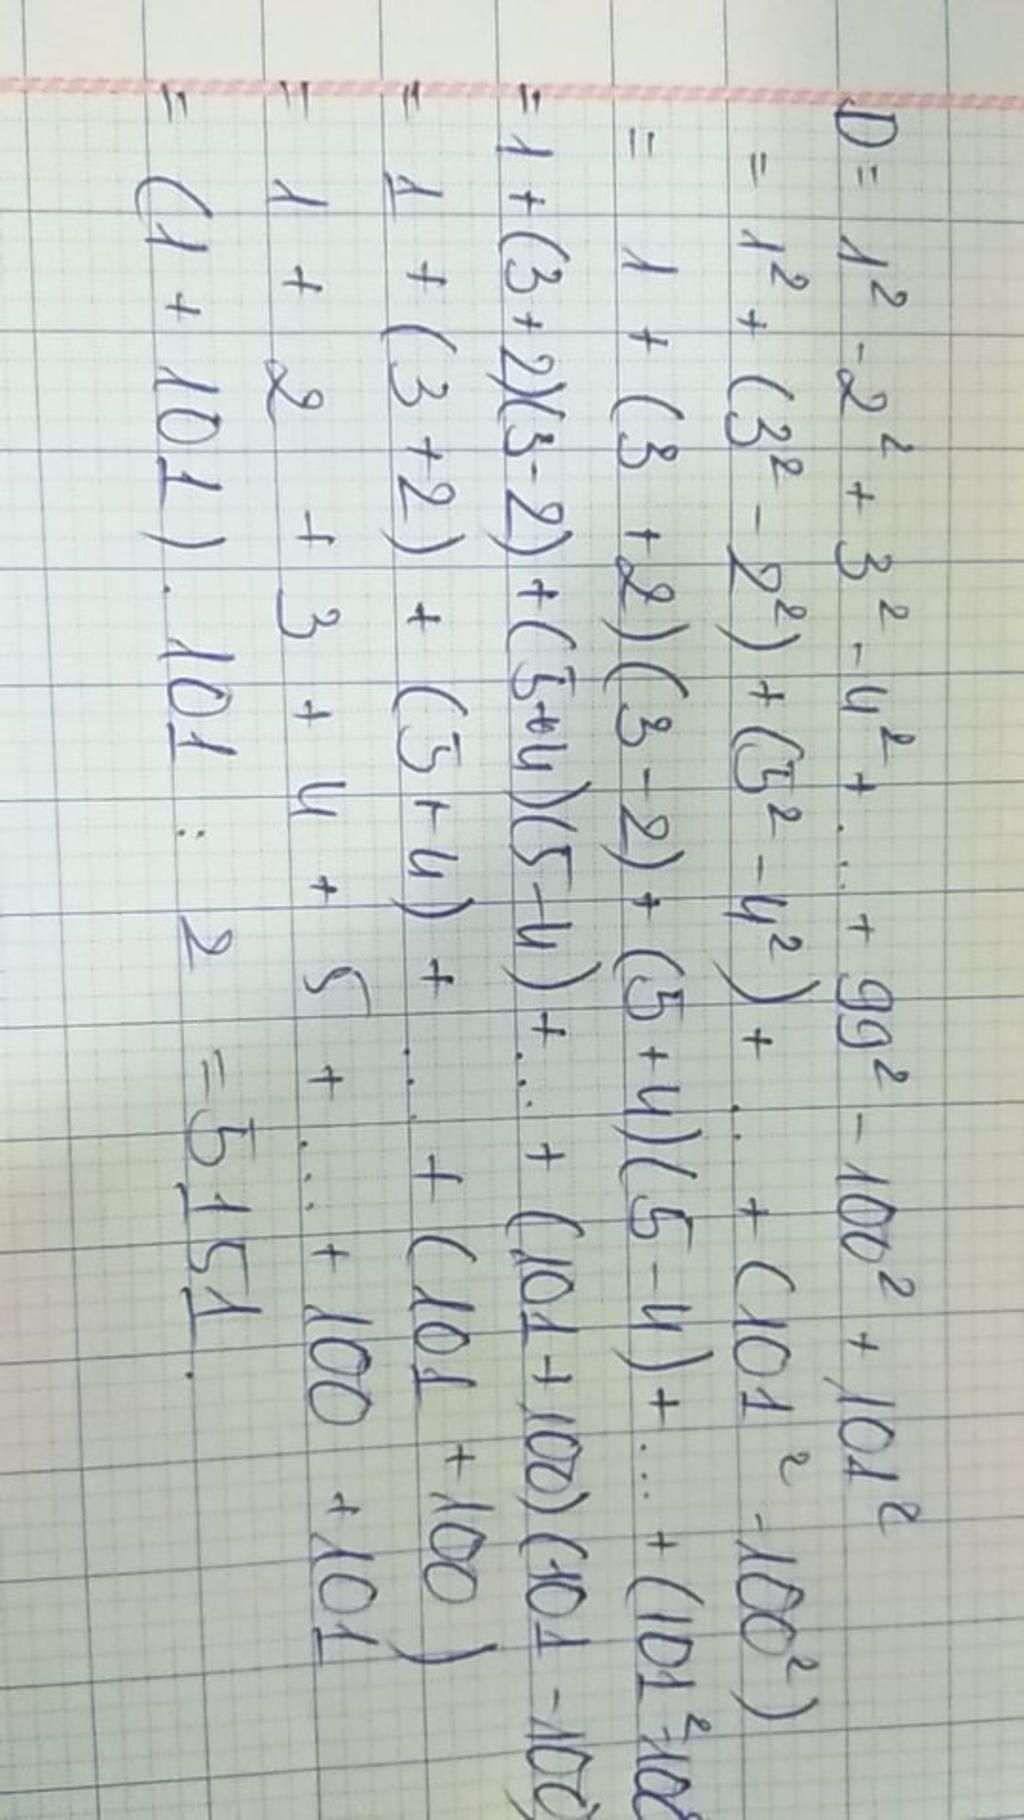 D = 1² - 2² + 3² - 4² + ... + 99² - 100² + 101²
= 1² + (3² - 2²) + (5² - 4²) + ... + (101² - 100²)
= 1 + (3 + 2)(3 - 2) + (5 + 4)(5 - 4) + ... + (101² - 100²
= 1 + (3 + 2)(3 - 2) + (5 + 4)(5 - 4) + ... + (101 + 100)(101 - 100)
= 1 + (3 + 2) + (5 + 4) + ... + (101 + 100)
= 1 + 2 + 3 + 4 + 5 + ... + 100 + 101
= (1 + 101) . 101 : 2 = 5151.